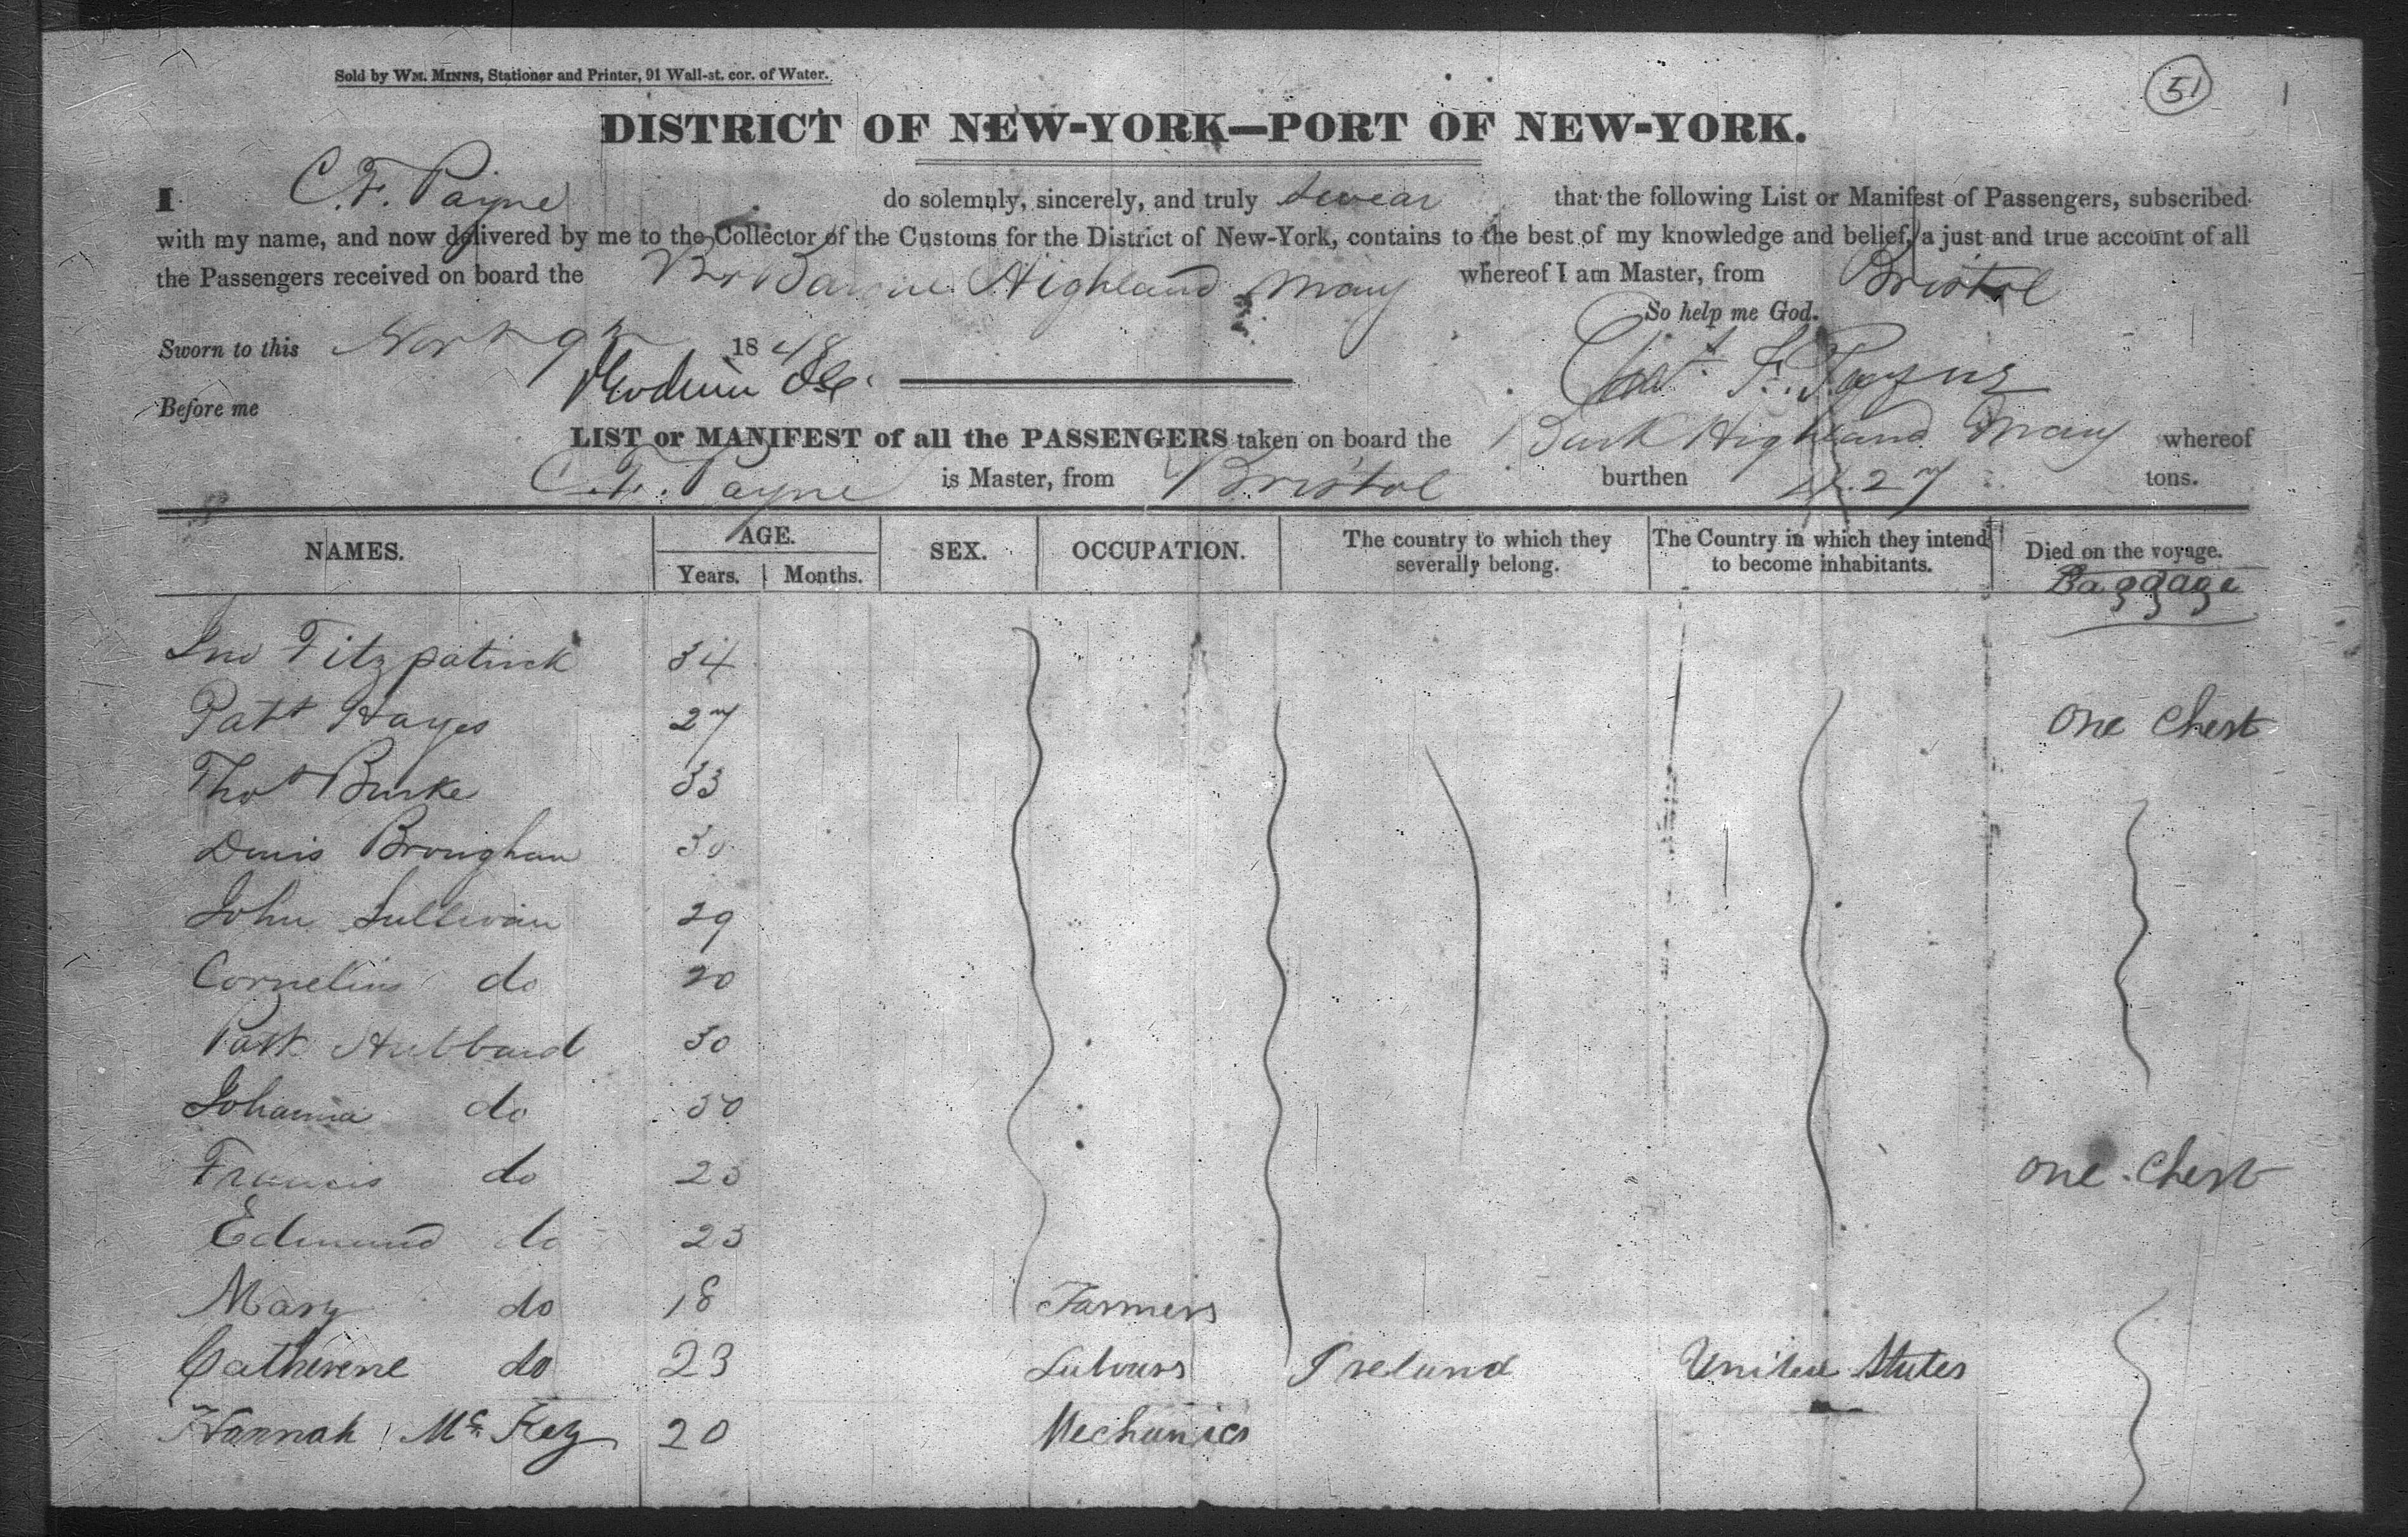 Sold by WM. MINNS, Stationer and Printer, 91 Wall-st. cor. of Water.
51
DISTRICT OF NEW-YORK—PORT OF NEW-YORK.
I C. F. Payne do solemnly, sincerely, and truly swear that the following List or Manifest of Passengers, subscribed
with my name, and now delivered by me to the Collector of the Customs for the District of New-York, contains to the best of my knowledge and belief, a just and true account of all
the Passengers received on board the Br Barque Highland Mary whereof I am Master, from Bristol
So help me God.
Sworn to this Nov 1848
Chas. F. Payne
Before me
LIST or MANIFEST of all the PASSENGERS taken on board the Bark Highland Mary whereof
C. F. Payne is Master, from Bristol burthen 427 tons.
NAMES. AGE. Years. Months. SEX. OCCUPATION. The country to which they severally belong. The Country in which they intend to become inhabitants. Died on the voyage.
Baggage
Jno Fitzpatrick 34
Patt Hayes 27 One Chest
Thos Burke 33
Denis Broughan 30
John Sullivan 29
Cornelius do 20
Patk Hubbard 30
Johanna do 30
Francis do 23 One Chest
Edmund do 23
Mary do 18 Farmers
Catherene do 23 Labours Ireland United States
Hannah Mc Key 20 Mechanics